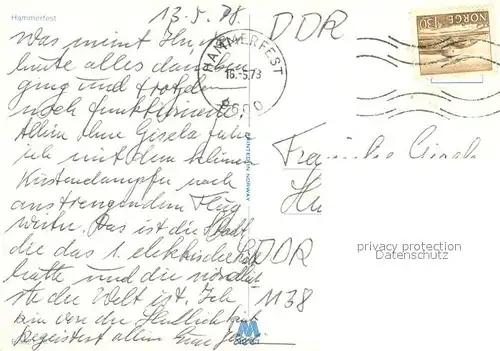 Hammerfest
13.5.78
Was meint Ihr,
heute alles daneben
ging und trotzdem
noch funktionierte.
Allein ohne Gisela fahre
ich mit dem kleinen
Küstendampfer nach
anstrengendem Flug
weiter. Das ist die Stadt
die das 1. elektrische
hatte und die nördlich
ste der Welt ist. Ich
bin von der Herrlichkeit
begeistert allein Eure
PRINTED IN NORWAY
DDR
HAMMERFEST
16.-5.78
9600
NORGE
130
Familie
DDR
1138
privacy protection
Datenschutz